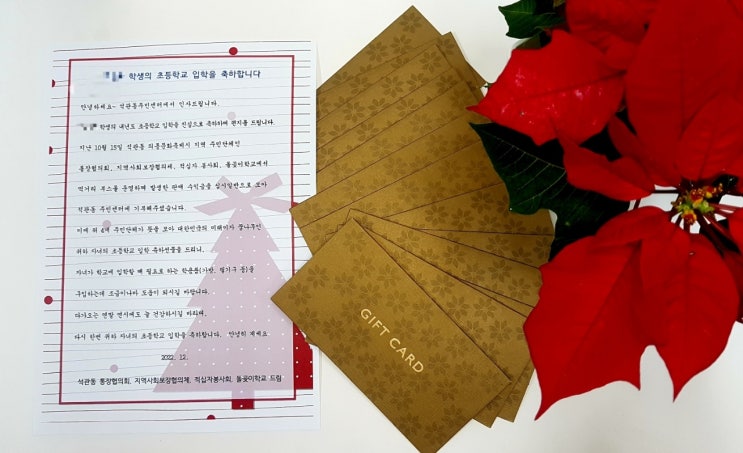 학생의 초등학교 입학을 축하합니다
안녕하세요~ 석관동주민센터에서 인사드립니다.
학생의 내년도 초등학교 입학을 진심으로 축하하며 편지를 드립니다.
지난 10월 15일 석관동 의릉문화축제시 지역 주민단체인
통장협의회, 지역사회보장협의체, 적십자 봉사회, 돌곶이학교에서
먹거리 부스를 운영하며 발생한 판매 수익금을 십시일반으로 모아
석관동 주민센터에 기부해주셨습니다.
이에 위 4개 주민단체가 뜻을 모아 대한민국의 미래이자 꿈나무인
귀하 자녀의 초등학교 입학 축하선물을 드리니,
자녀가 학교에 입학할 때 필요로 하는 학용품(가방, 필기구 등)을
구입하는데 조금이나마 도움이 되시길 바랍니다.
다가오는 연말 연시에도 늘 건강하시길 바라며,
다시 한번 귀하 자녀의 초등학교 입학을 축하합니다. 안녕히 계세요
2022. 12.
석관동 통장협의회, 지역사회보장협의체, 적십자봉사회, 돌곶이학교 드림
GIFT CARD